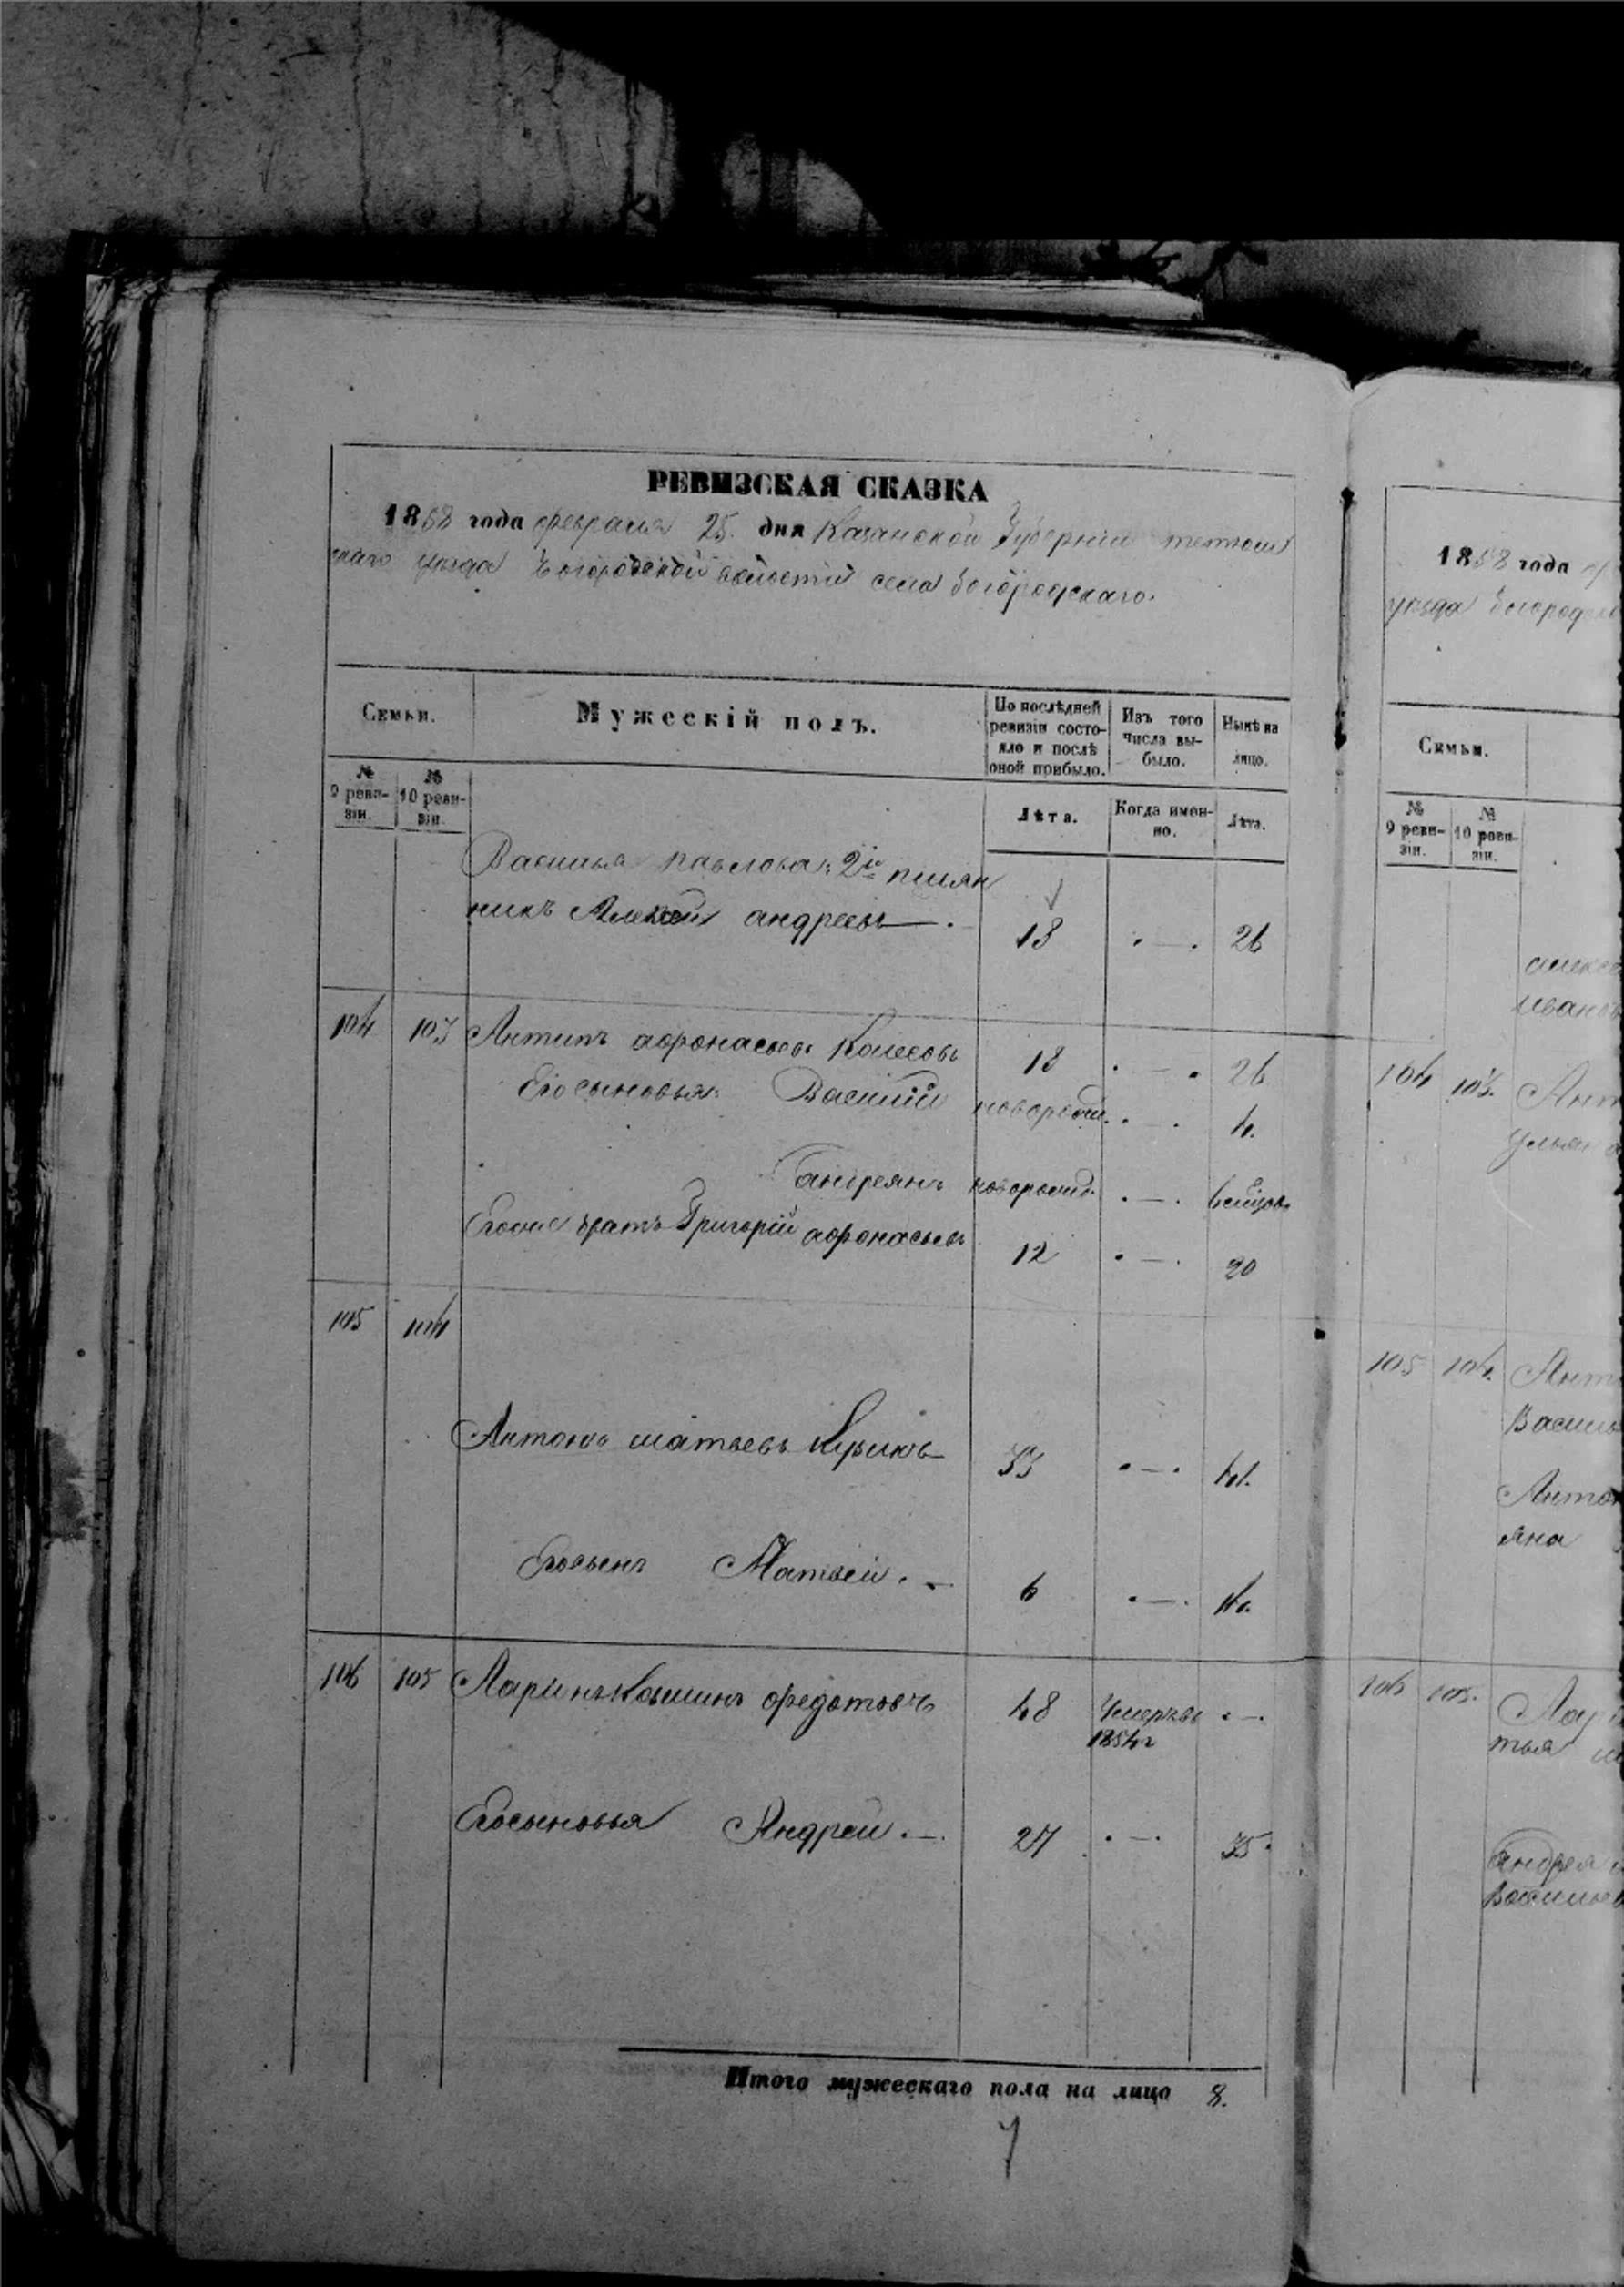 РЕВИЗСКАЯ СКАЗКА
1858 года февраля 25. дня Казанской Губернии тетюш
скаго уезда Богородской волости села Богородскаго.
Семьи.
Мужескій полъ.
По послѣдней ревизіи состояло и послѣ оной прибыло.
Изъ того числа выбыло.
Нынѣ на лицо.
№ 9 ревизіи.
№ 10 ревизіи.
Лѣта.
Когда именно.
Лѣта.
Василья павлова: 2й пшян
никъ Алексей андреевъ 18 26
104 103 Антипъ афонасьевъ Колесовъ 18 26
Его сыновья: Василий новорожд. 4.
андреянъ новорожд. 6 месяцовъ
Егоже братъ Григорій афонасьевъ 12 20
105 104
Антонъ матвеевъ 33 41.
Егосынъ Матвей. 6 14.
106 105 Ларинъ федотовъ 48 Умеръ въ
1854 г
Егосыновья Андрей. 27 35.
Итого мужескаго пола на лицо 8.
7
1858 года
уезда Богородс
Семьи.
№ 9 ревизіи.
№ 10 ревизіи.
алексе
иванов
104 103. Ант
улья
105 104. Ант
Василь
Антон
яна
106 105.
тья
андрея
Василье